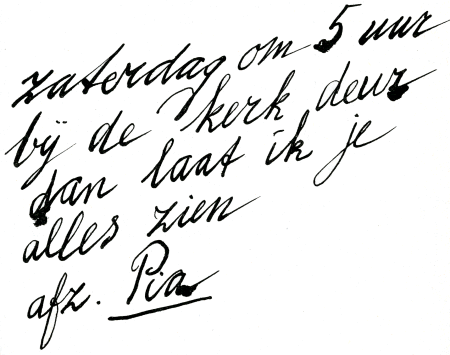 zaterdag om 5 uur
bij de kerk deur
dan laat ik je
alles zien
afz. Pia